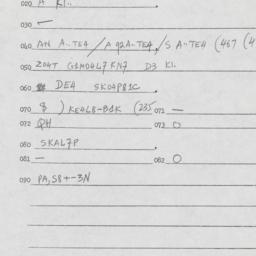 020 A KL.
030 —
040 AN A..TE4 / A 92A-TE4 / S A..TE4 (467
050 Z04T G1M04L7 KN7 D3 KL.
060 DE4 SK04P81C
070 8 ) KE4L8-B4K (235 071 —
072 QH 073 O
080 SKAL7P
081 — 082 O
090 PA,S8+-3N